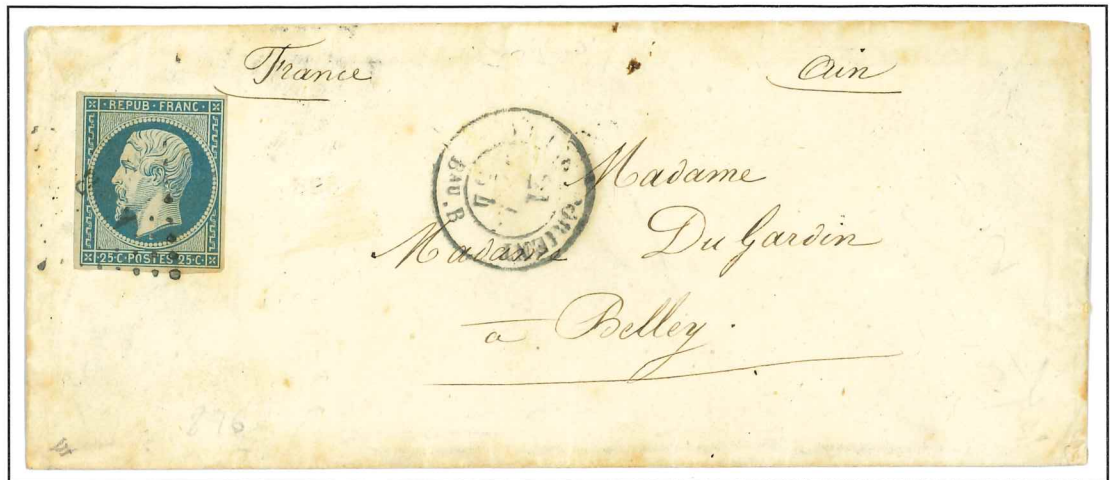 France
Ain
REPUB·FRANC·
25·C·POSTES·25·C·
ORIENT
BAU. B
Madame
Madame Du Gardin
à Belley.
896